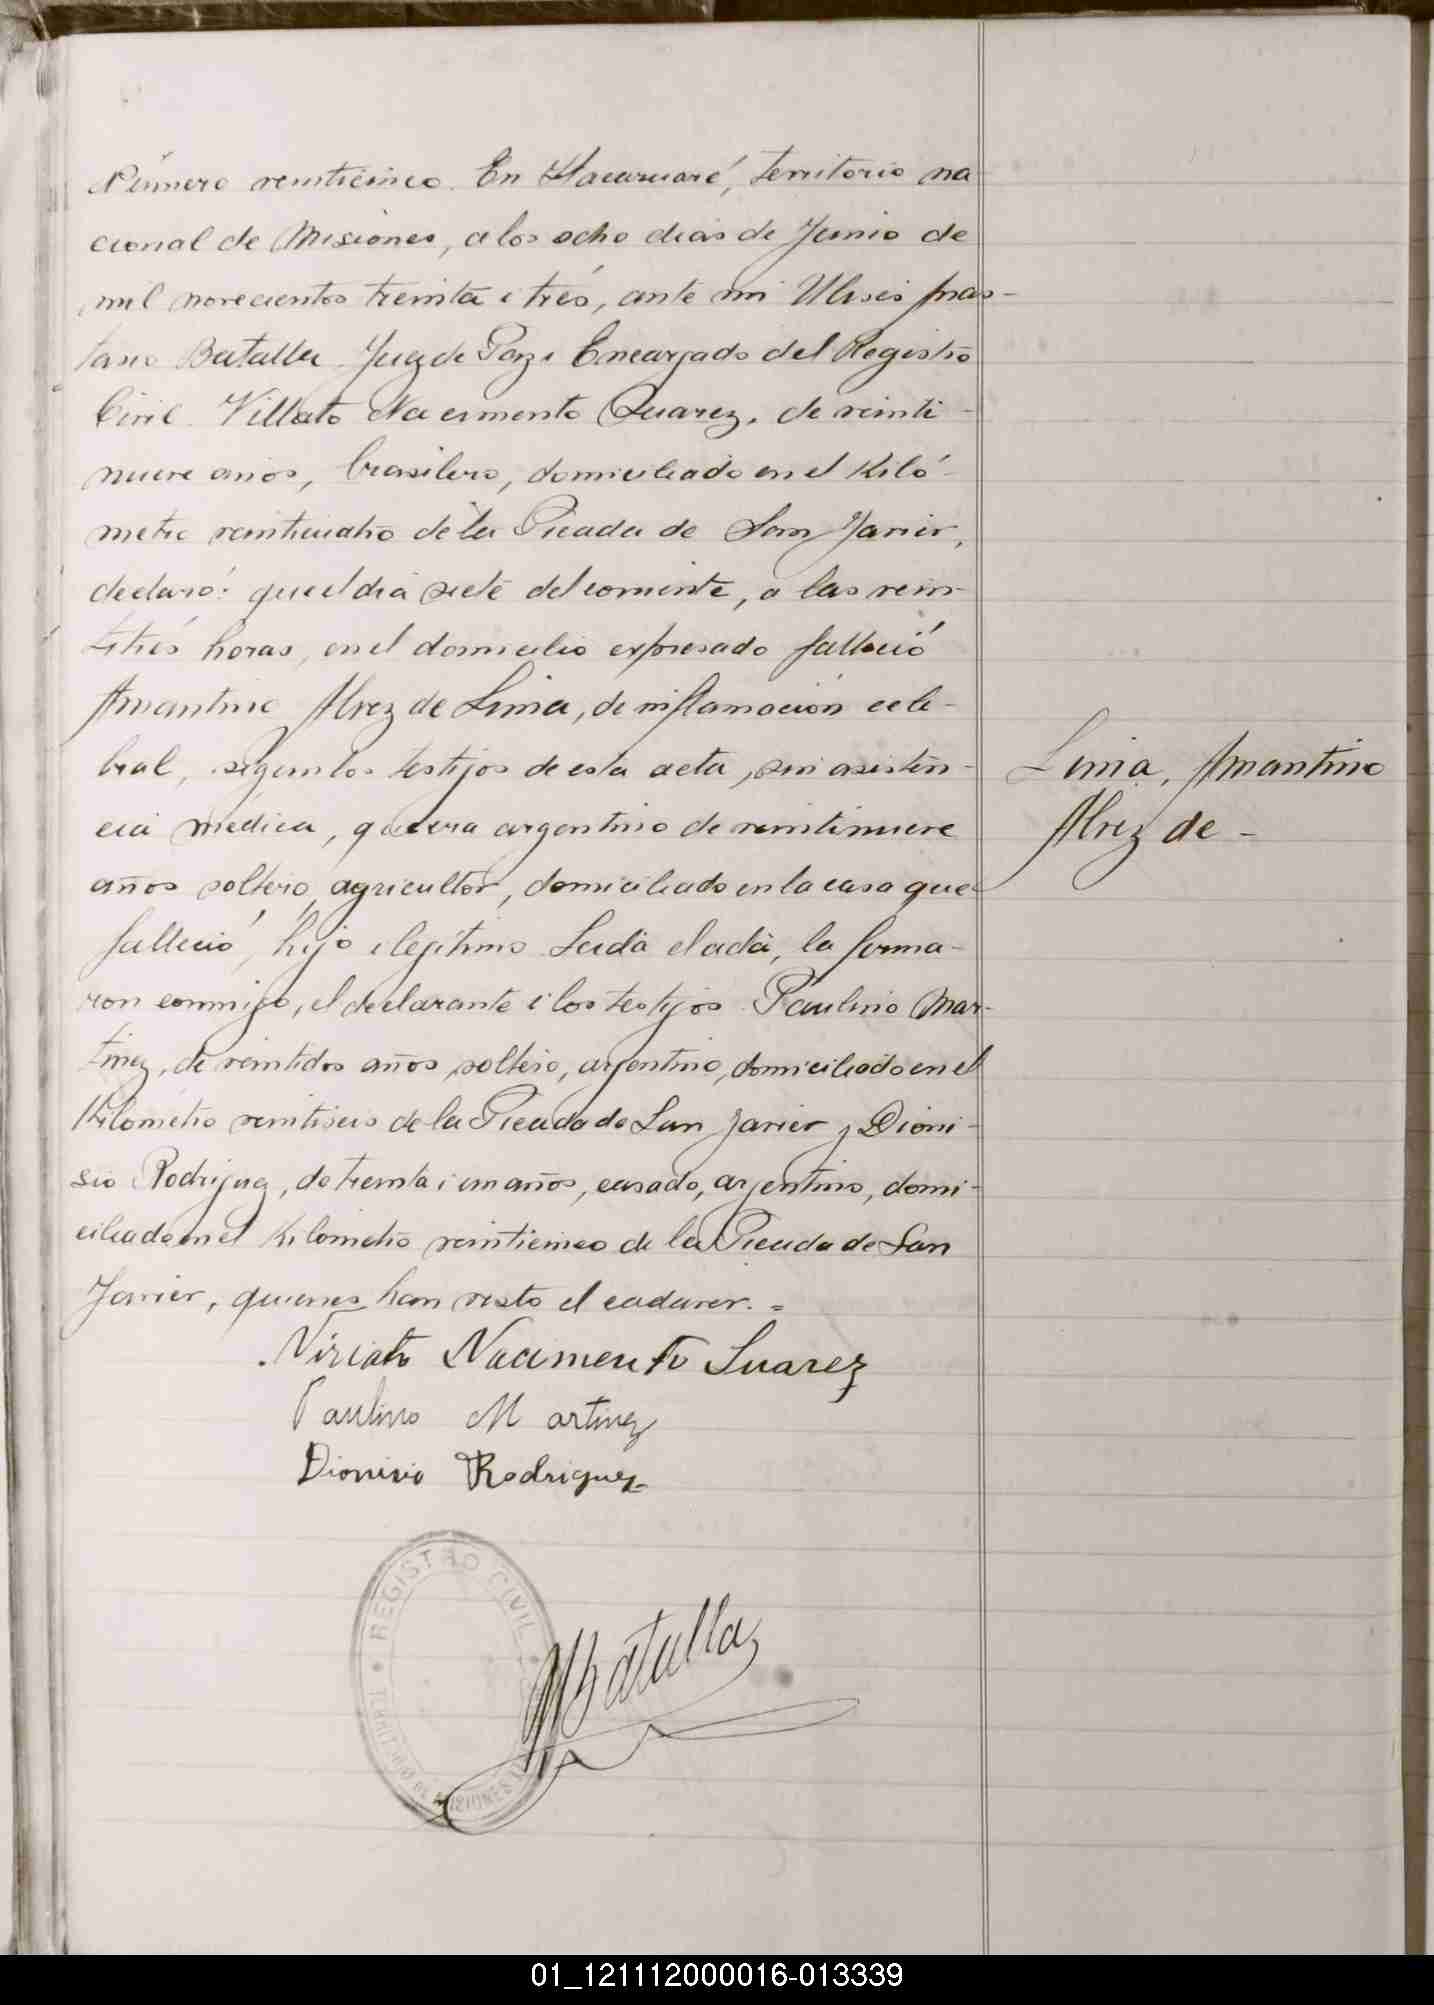 Número veinticinco. En Itacaruaré, territorio na
cional de Misiones, a los ocho dias de Junio de
mil novecientos treinta i trés, ante mi Ulises
Batalla Juez de Paz i Encargado del Registro
Civil. Villato Nacimento Suarez, de veinti-
nueve anios, brasilero, domiciliado en el Kiló-
metro veinticuatro de la Picada de San Javier,
declaró: que el dia siete del corriente, a las vein-
titrés horas, en el domicilio expresado falleció
Amantino Alvez de Lima, de inflamación cele-
bral, segun los testijos de esta acta, sin asisten-
cia médica, que era argentino de veintinueve
años soltero, agricultor, domiciliado en la casa que
falleció, hijo ilegítimo. Leida el acta, la firma-
ron conmigo, el declarante i los testijos Paulino Mar-
tinez, de veintidos años, soltero, arjentino, domiciliado en el
Kilometro veintiseis de la Picada de San Javier y Dioni-
sio Rodrijuez, de treinta i un años, casado, arjentino, domi-
ciliado en el Kilometro veinticinco de la Picada de San
Javier, quienes han visto el cadaver. =
Lima, Amantino
Alvez de -
Viriato Nacimento Suarez
Paulino Martinez
Dionisio Rodriguez
REGISTRO CIVIL
TERRITORIO DE MISIONES
Batalla
01_121112000016-013339